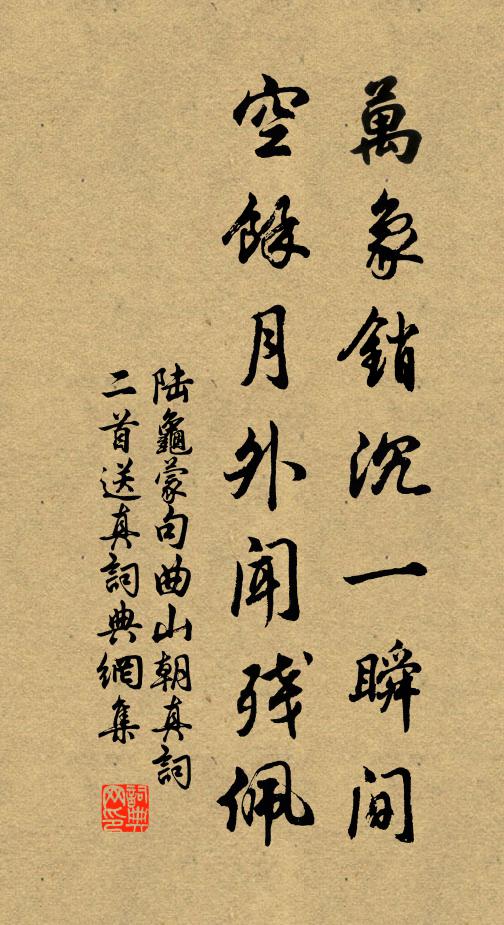 萬象銷沉一瞬間
空餘月外聞残佩
陆龜蒙句曲山朝真詞
二首送真詞典網集
詞典
网印